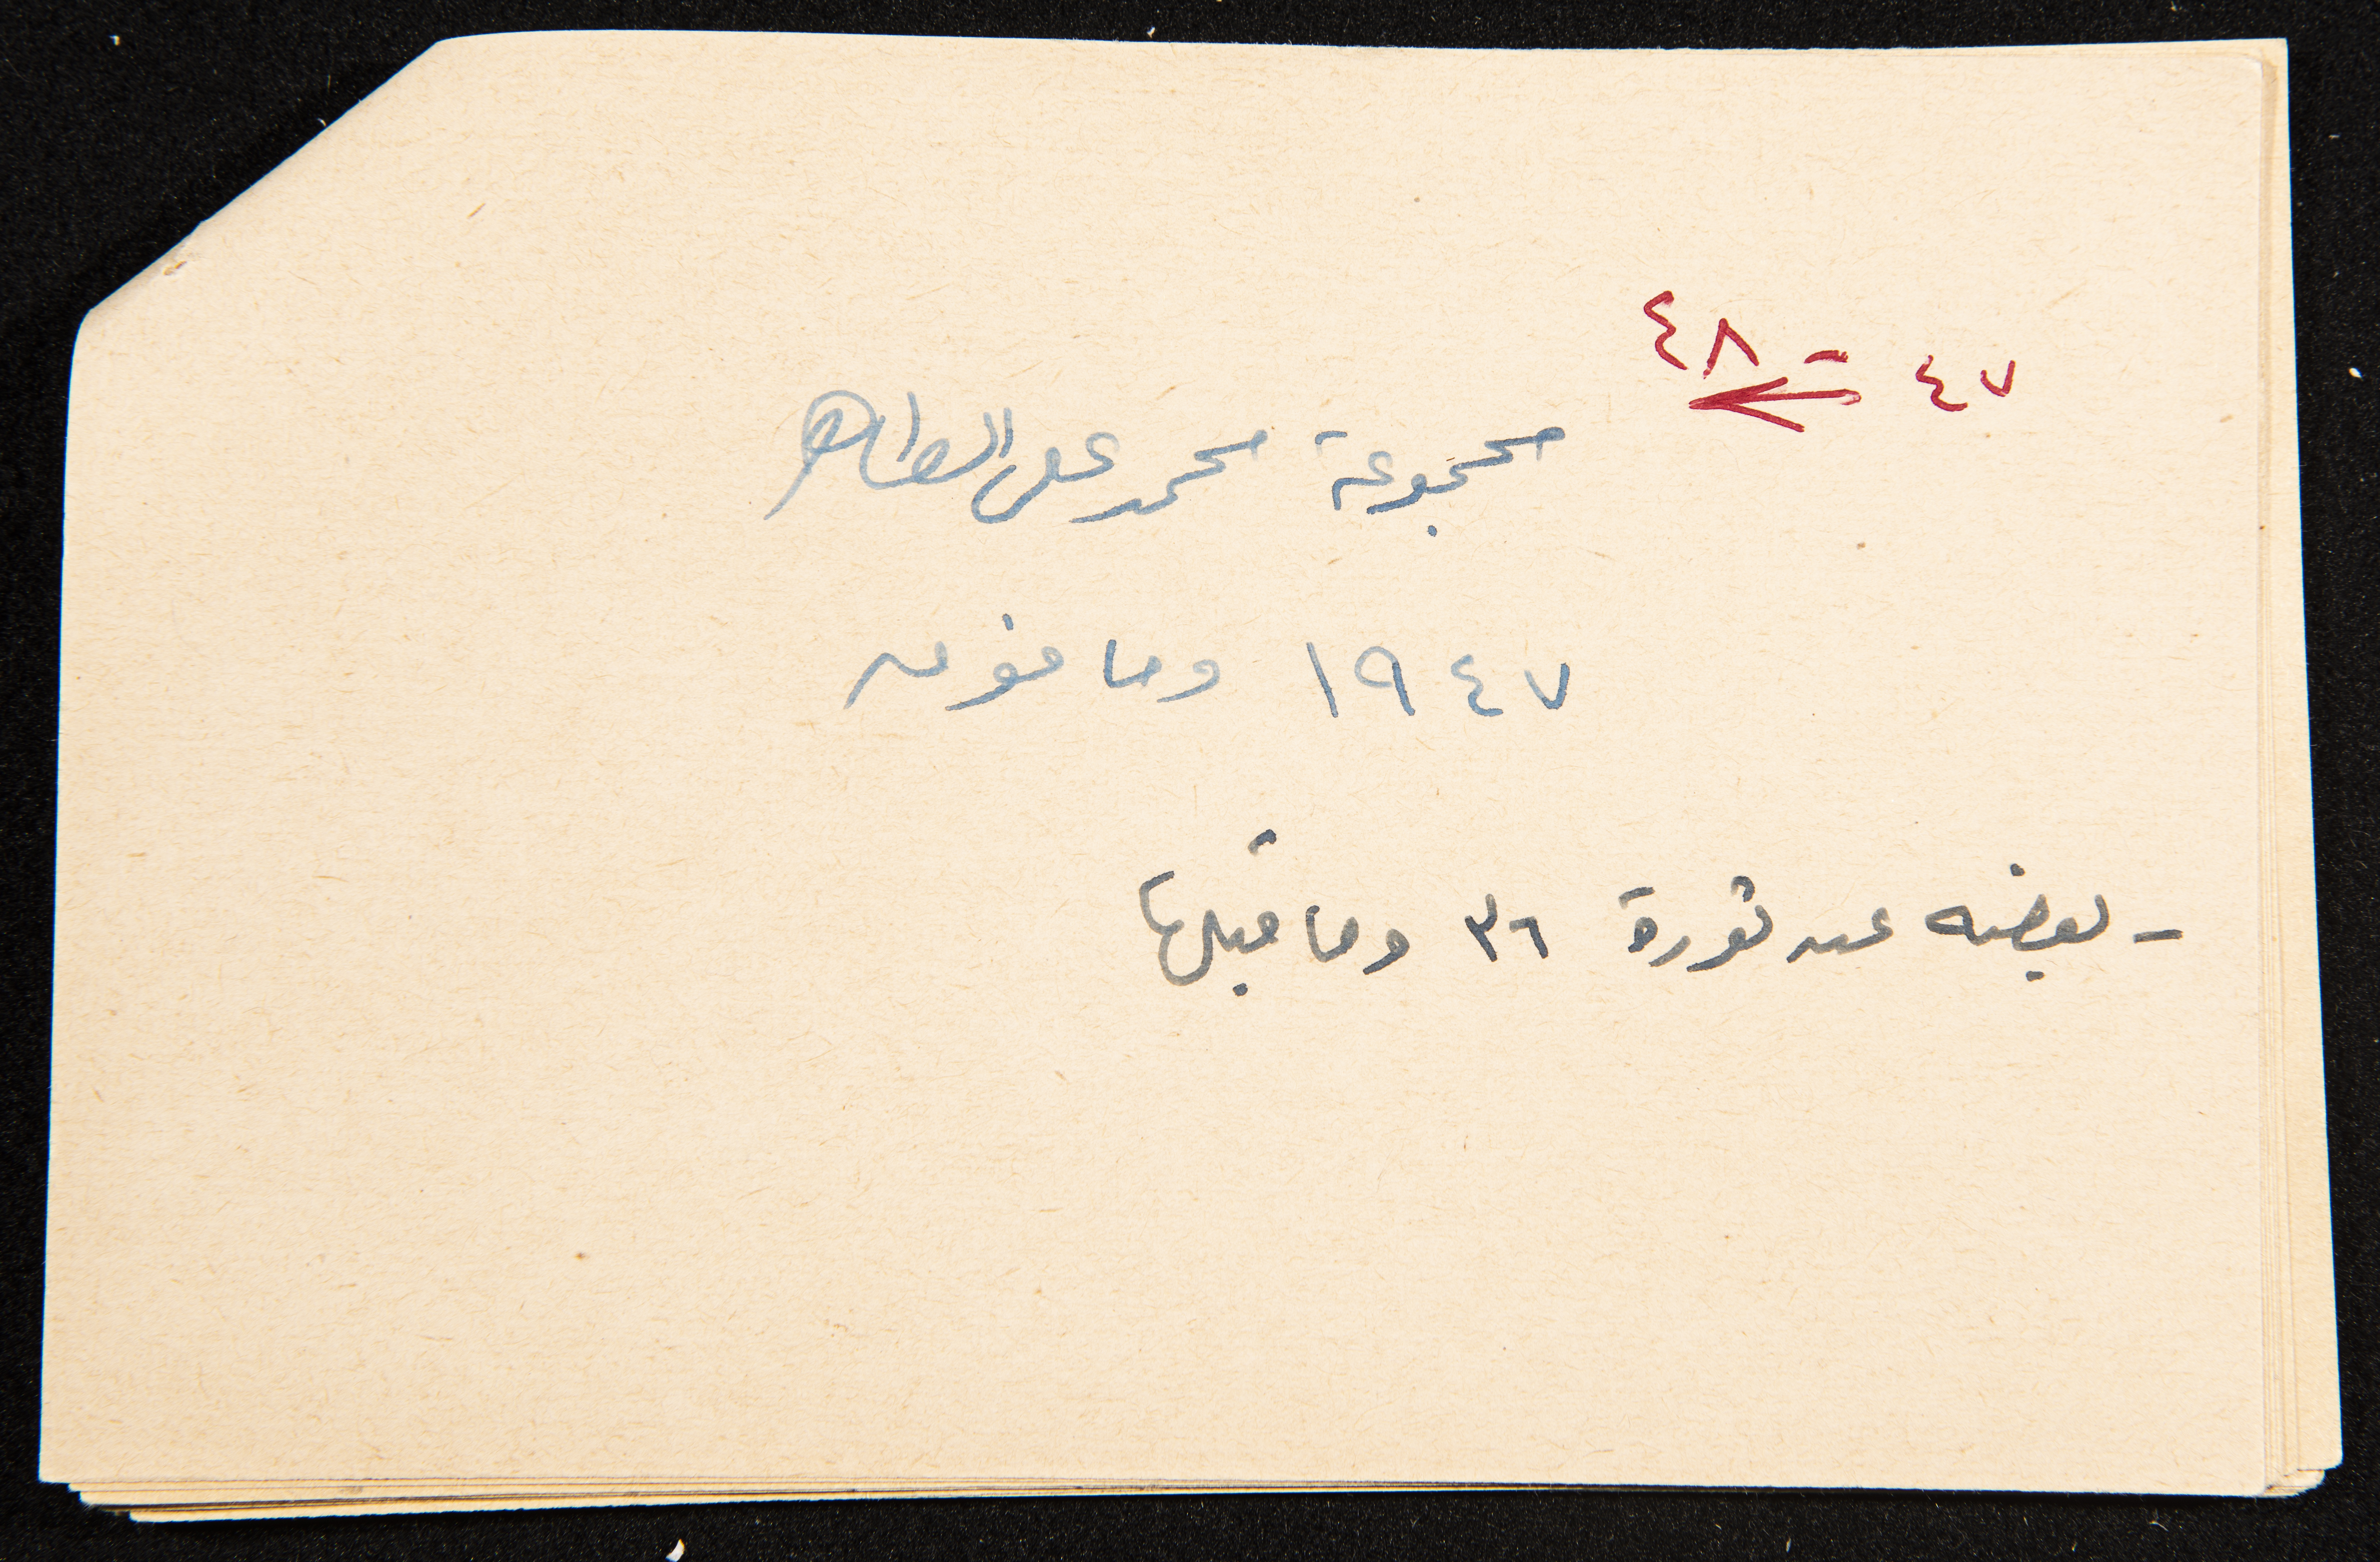 ٤٧ - ٤٨
مجموعة محمد علي الطاهر
١٩٤٧ وما فوق
- بعضه عن ثورة ٣٦ وما قبلها